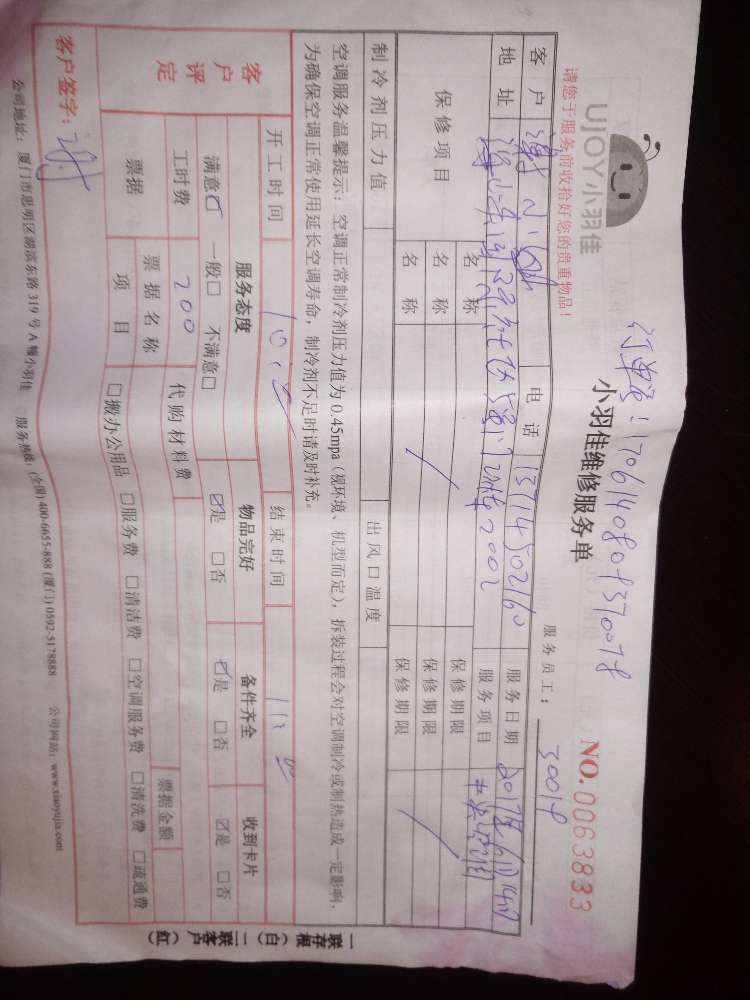 订单号：1706140808370078
UJOY小羽佳
小羽佳维修服务单
NO.0063833
请您于服务前收拾好您的贵重物品！
服务员工：30018
客户 谢小 电话 13714502160 服务日期 2017年6月14日
地址 2002 服务项目
保修项目 名称 保修期限
名称 保修期限
名称 保修期限
制冷剂压力值 出风口温度
空调服务温馨提示：空调正常制冷剂压力值为0.45mpa（视环境、机型而定），拆装过程会对空调制冷或制热造成一定影响，
为确保空调正常使用延长空调寿命，制冷剂不足时请及时补充。
开工时间 结束时间
客户评定 服务态度 物品完好 备件齐全 收到卡片
满意☑ 一般□ 不满意□ ☑是 □否 ☑是 □否 ☑是 □否
工时费 200 代购材料费
票据 票据名称 票据金额
项目 □搬办公用品 □服务费 □清洁费 □空调服务费 □清洗费 □疏通费
客户签字：谢
一联存根（白） 二联客户（红）
公司地址：厦门市思明区湖滨东路319号A幢小羽佳 服务热线：(全国)400-6655-888 (厦门) 0592-5178888 公司网站：www.xiaoyujia.com